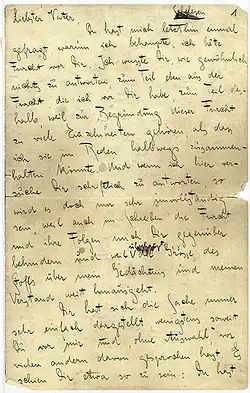 Schelesen 1
Liebster Vater
Du hast mich letzthin einmal
gefragt, warum ich behaupte, ich hätte
Furcht vor Dir. Ich wusste Dir, wie gewöhnlich,
nichts zu antworten, zum Teil eben aus der
Furcht die ich vor Dir habe, zum Teil des-
halb, weil zur Begründung dieser Furcht
zu viele Einzelnheiten gehören, als dass
ich sie im Reden halbwegs zusammen-
halten könnte. Und wenn ich hier ver-
suche Dir schriftlich zu antworten, so
wird es doch nur sehr unvollständig
sein, weil auch im Schreiben die Furcht
und ihre Folgen mich Dir gegenüber
behindern und weil die Grösse des
Stoffs über mein Gedächtnis und meinen
Verstand weit hinausgeht.
Dir hat sich die Sache immer
sehr einfach dargestellt, wenigstens soweit
Du vor mir und, ohne Auswahl, vor
vielen andern davon gesprochen hast. Es
schien Dir etwa so zu sein: Du hast